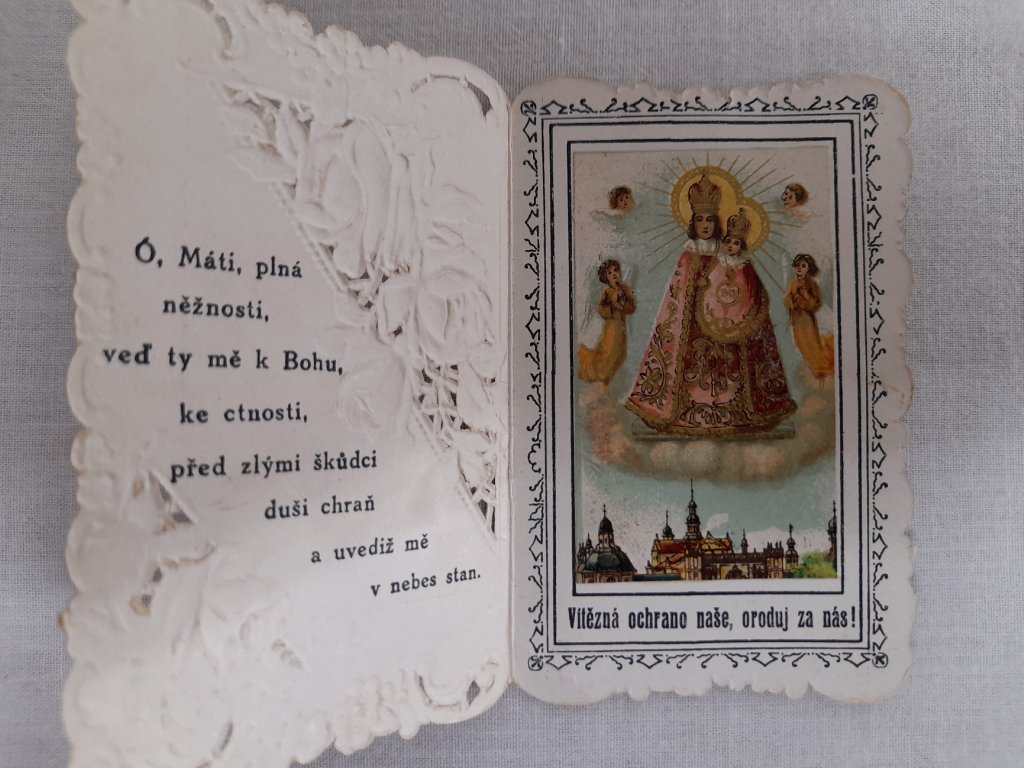 Ó, Máti, plná
něžnosti,
veď ty mě k Bohu,
ke ctnosti,
před zlými škůdci
duši chraň
a uvediž mě
v nebes stan.
Vítězná ochrano naše, oroduj za nás!